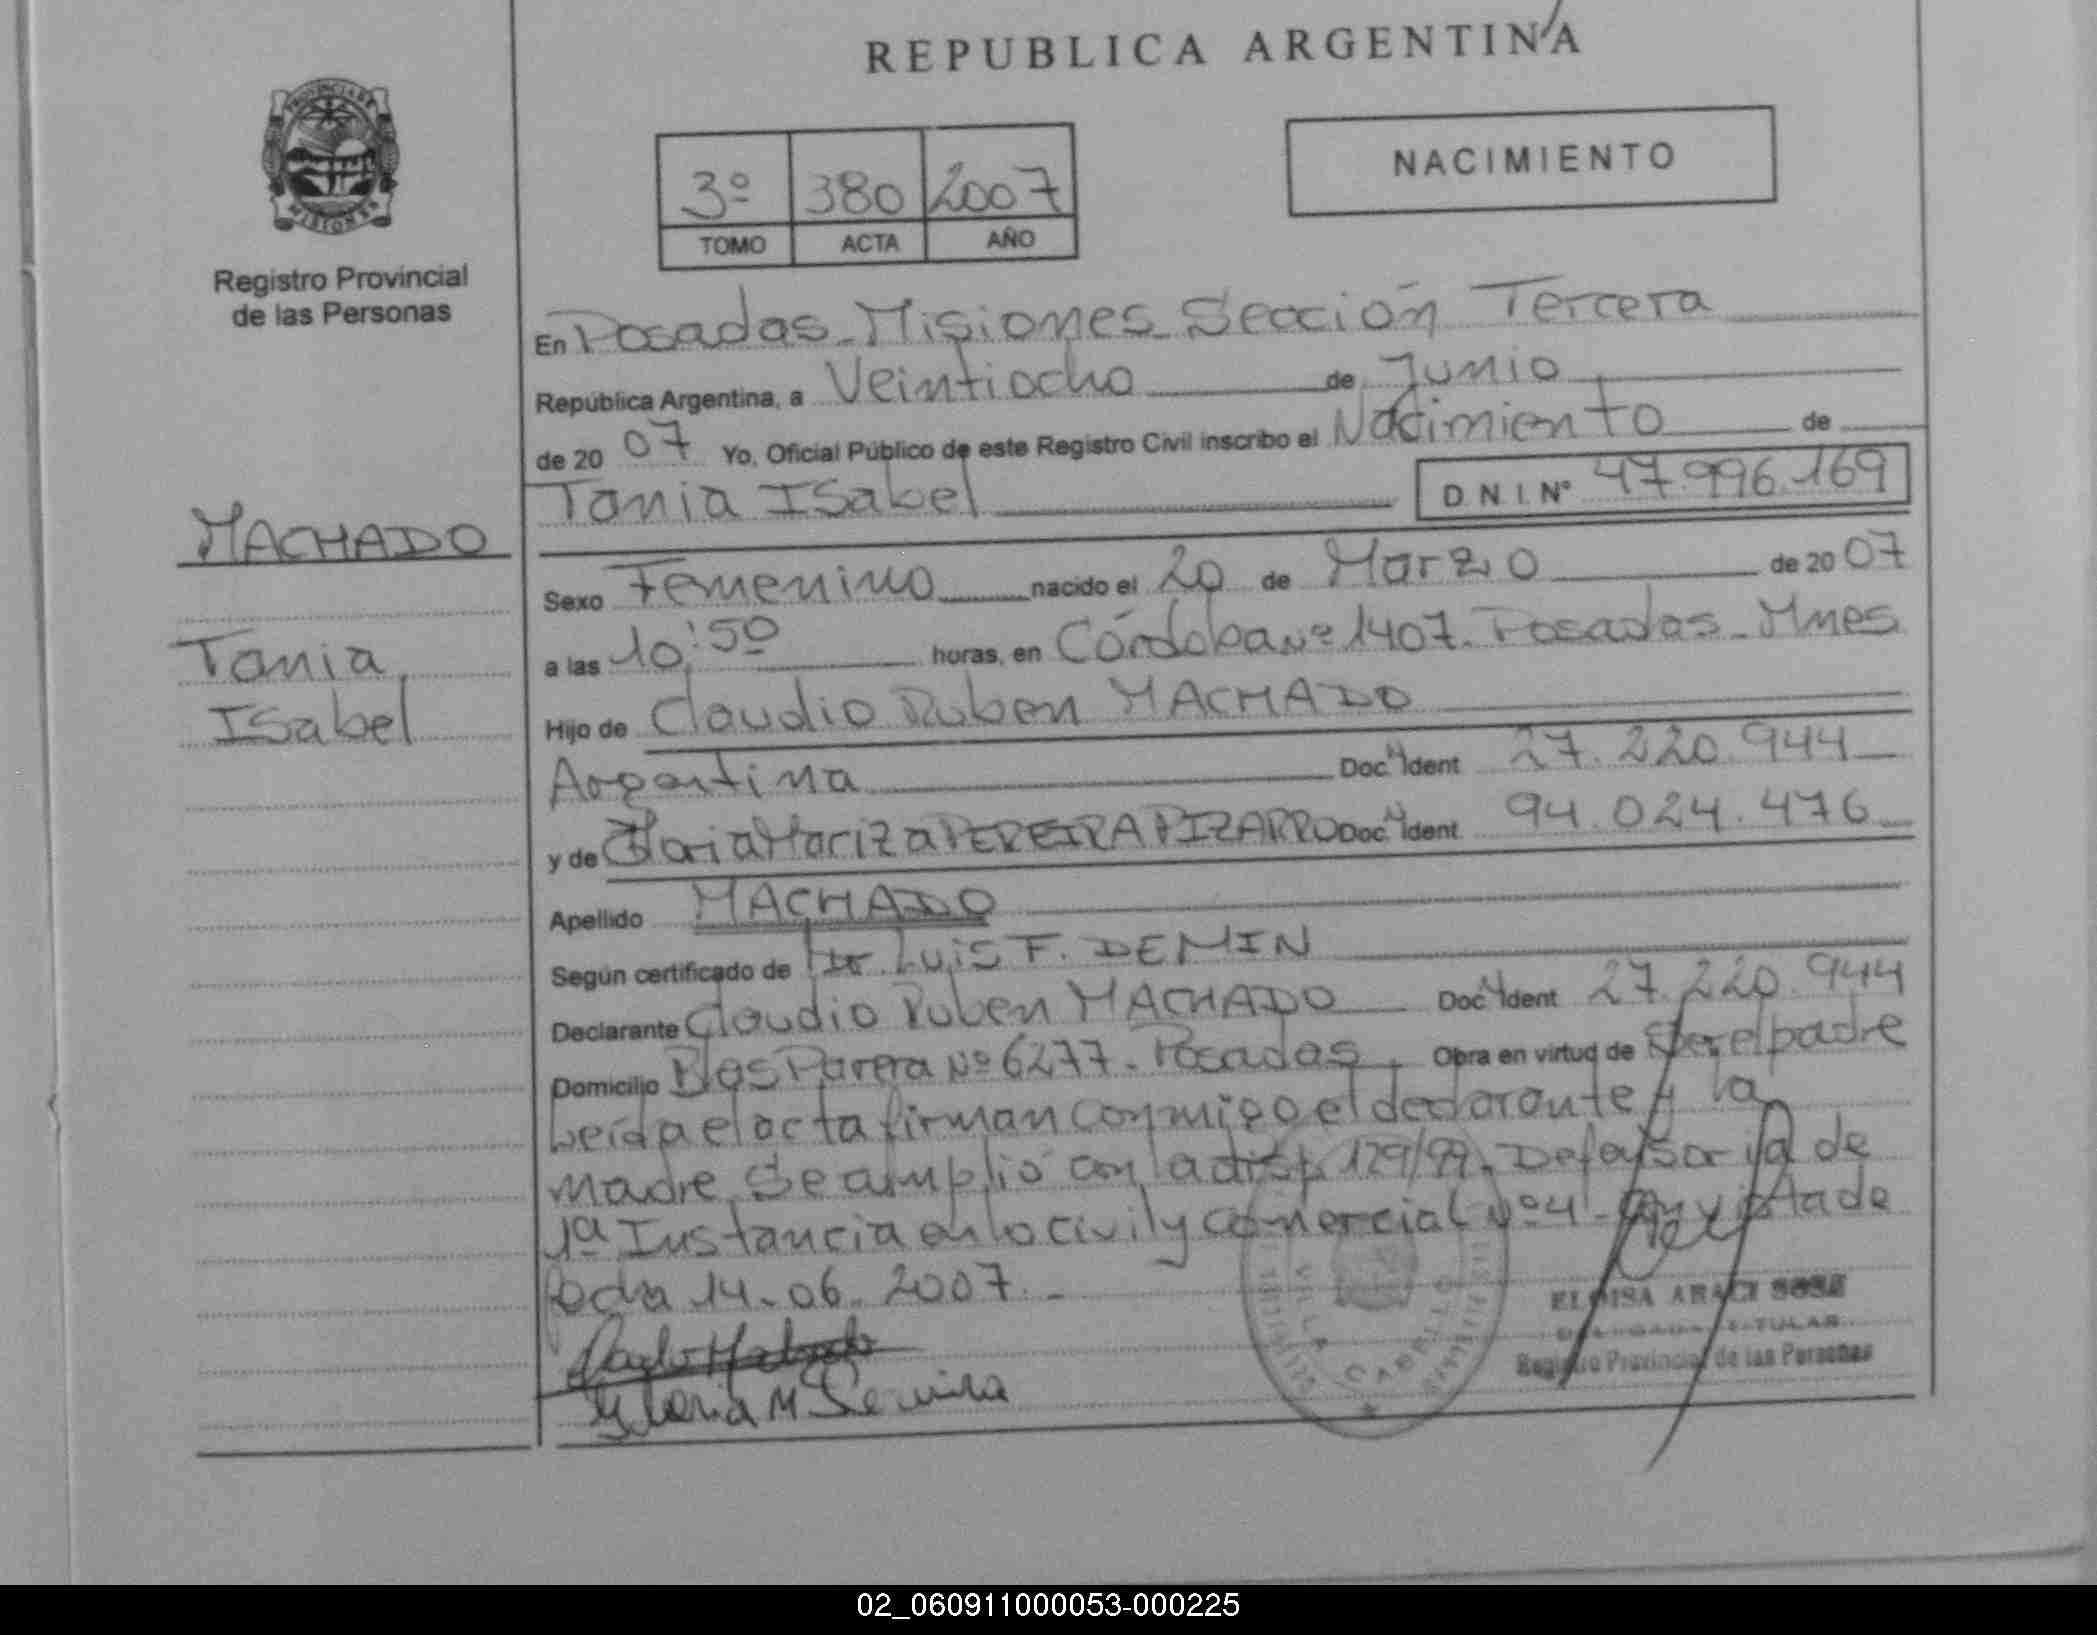 REPUBLICA ARGENTINA
PROVINCIA DE
MISIONES
Registro Provincial
de las Personas
3º 380 2007
TOMO ACTA AÑO
NACIMIENTO
En Posadas - Misiones - Sección Tercera
República Argentina, a Veintiocho de Junio
de 20 07 Yo, Oficial Público de este Registro Civil inscribo el Nacimiento de
Tania Isabel D N I. Nº 47.996.169
MACHADO
Tania
Isabel
Sexo Femenino nacido el 20 de Marzo de 20 07
a las 10:50 horas, en Córdoba Nº 1407. Posadas - Mnes
Hijo de Claudio Ruben MACHADO
Argentina Doc. Ident 27.220.944
y de Gloria Mariza PEREIRA PIZARRO Doc. Ident. 94.024.476
Apellido MACHADO
Según certificado de Dr. Luis F. DEMIN
Declarante Claudio Ruben MACHADO Doc. Ident 27.220.944
Domicilio Blas Parera Nº 6277 - Posadas. Obra en virtud de Ser el padre
Leida el acta firman conmigo el declarante y la
madre. Se amplió con la disp. 129/99. Defensoria de
1ª Instancia en lo civil y comercial Nº 4 - con vista de
fecha 14-06-2007. -
Gloria M
VILLA CABELLO
ELOISA ARACI SOSA
TITULAR
Registro Provincial de las Personas
02_060911000053-000225